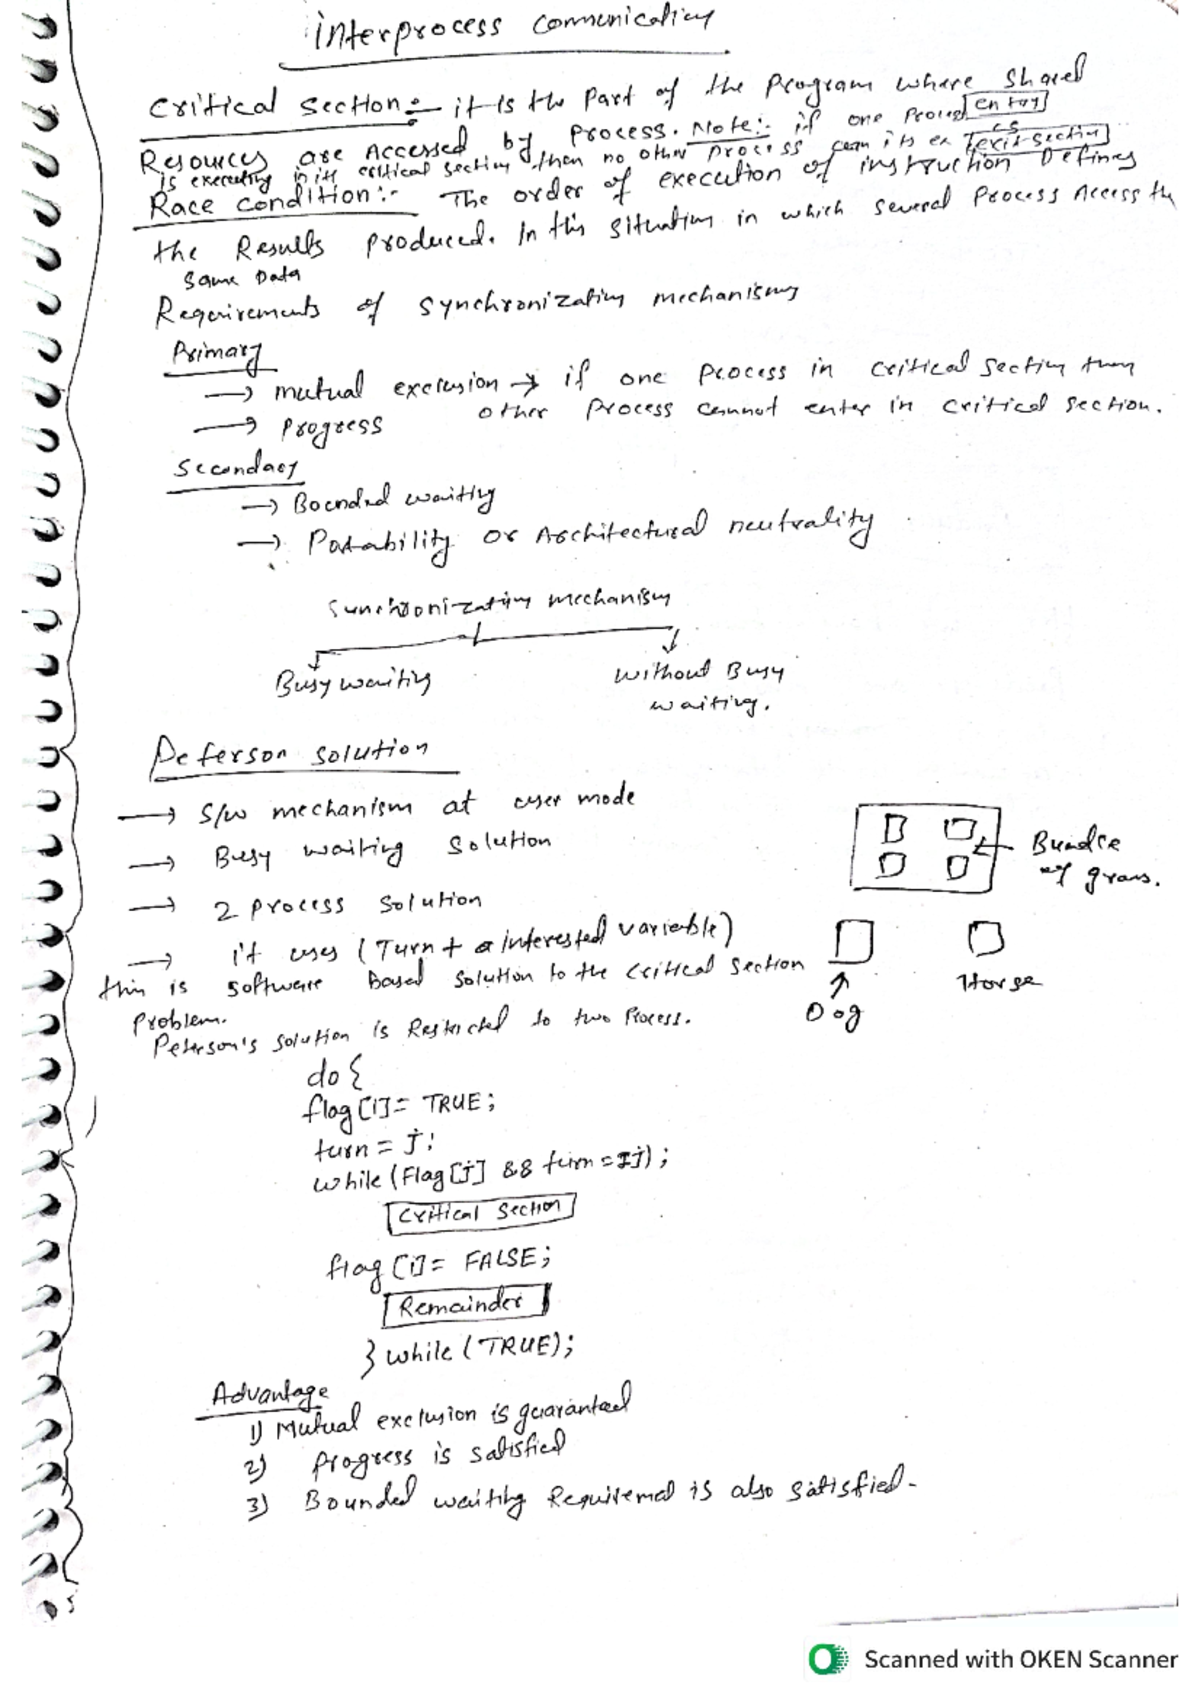 interprocess communication
Critical section:- it is the part of the program where shared
Resources are Accessed by process. Note:- if one process entry
is executing in its critical section then no other process can its ex CS exit section
Race condition:- The order of execution of instruction Defines
the Results produced. In this situation in which several process Access the
same Data
Requirements of synchronization mechanisms
Primary
→ mutual exclusion → if one process in critical section then
other process cannot enter in critical section.
→ Progress
Secondary
→ Bounded waiting
→ Portability or Architectural neutrality
Sunchronization mechanism
Busy waiting
without Busy
waiting.
Peterson solution
→ S/w mechanism at user mode
→ Busy waiting solution
→ 2 process solution
→ it uses (Turn + interested variable)
this is software based solution to the critical section
problem.
Peterson's solution is Restricted to two Process.
Bundle
of grass.
Dog
Horse
do {
flag[i] = TRUE;
turn = j;
while (flag[j] && turn == j);
Critical Section
flag [i] = FALSE;
Remainder
} while (TRUE);
Advantage
1) Mutual exclusion is guaranteed
2) Progress is satisfied
3) Bounded waiting Requiremed is also satisfied.
Scanned with OKEN Scanner